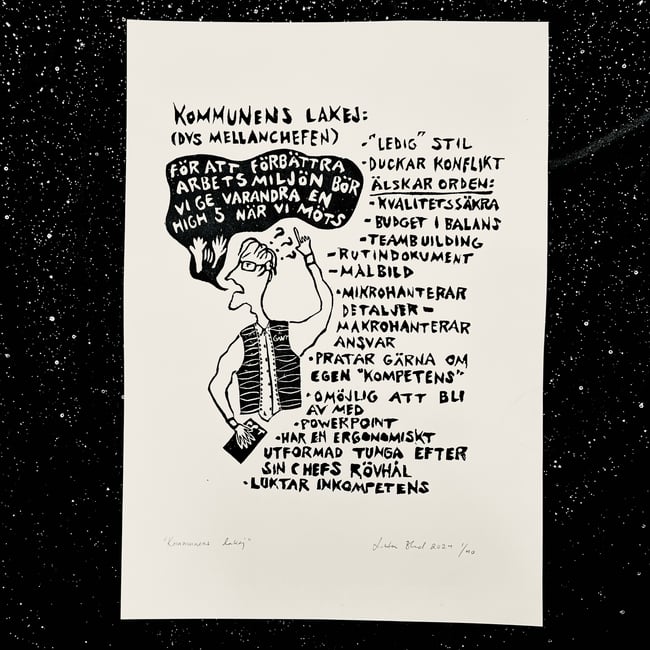 KOMMUNENS LAKEJ:
(DVS MELLANCHEFEN)
FÖR ATT FÖRBÄTTRA
ARBETSMILJÖN BÖR
VI GE VARANDRA EN
HIGH 5 NÄR VI MÖTS
???
GANT
-"LEDIG" STIL
-DUCKAR KONFLIKT
ÄLSKAR ORDEN:
-KVALITETSSÄKRA
-BUDGET I BALANS
-TEAMBUILDING
-RUTINDOKUMENT
-MÅLBILD
•MIKROHANTERAR
DETALJER-
MAKROHANTERAR
ANSVAR
•PRATAR GÄRNA OM
EGEN "KOMPETENS"
•OMÖJLIG ATT BLI
AV MED
•POWERPOINT
•HAR EN ERGONOMISKT
UTFORMAD TUNGA EFTER
SIN CHEFS RÖVHÅL
•LUKTAR INKOMPETENS
"Kommunens lakej"
2024 1/40